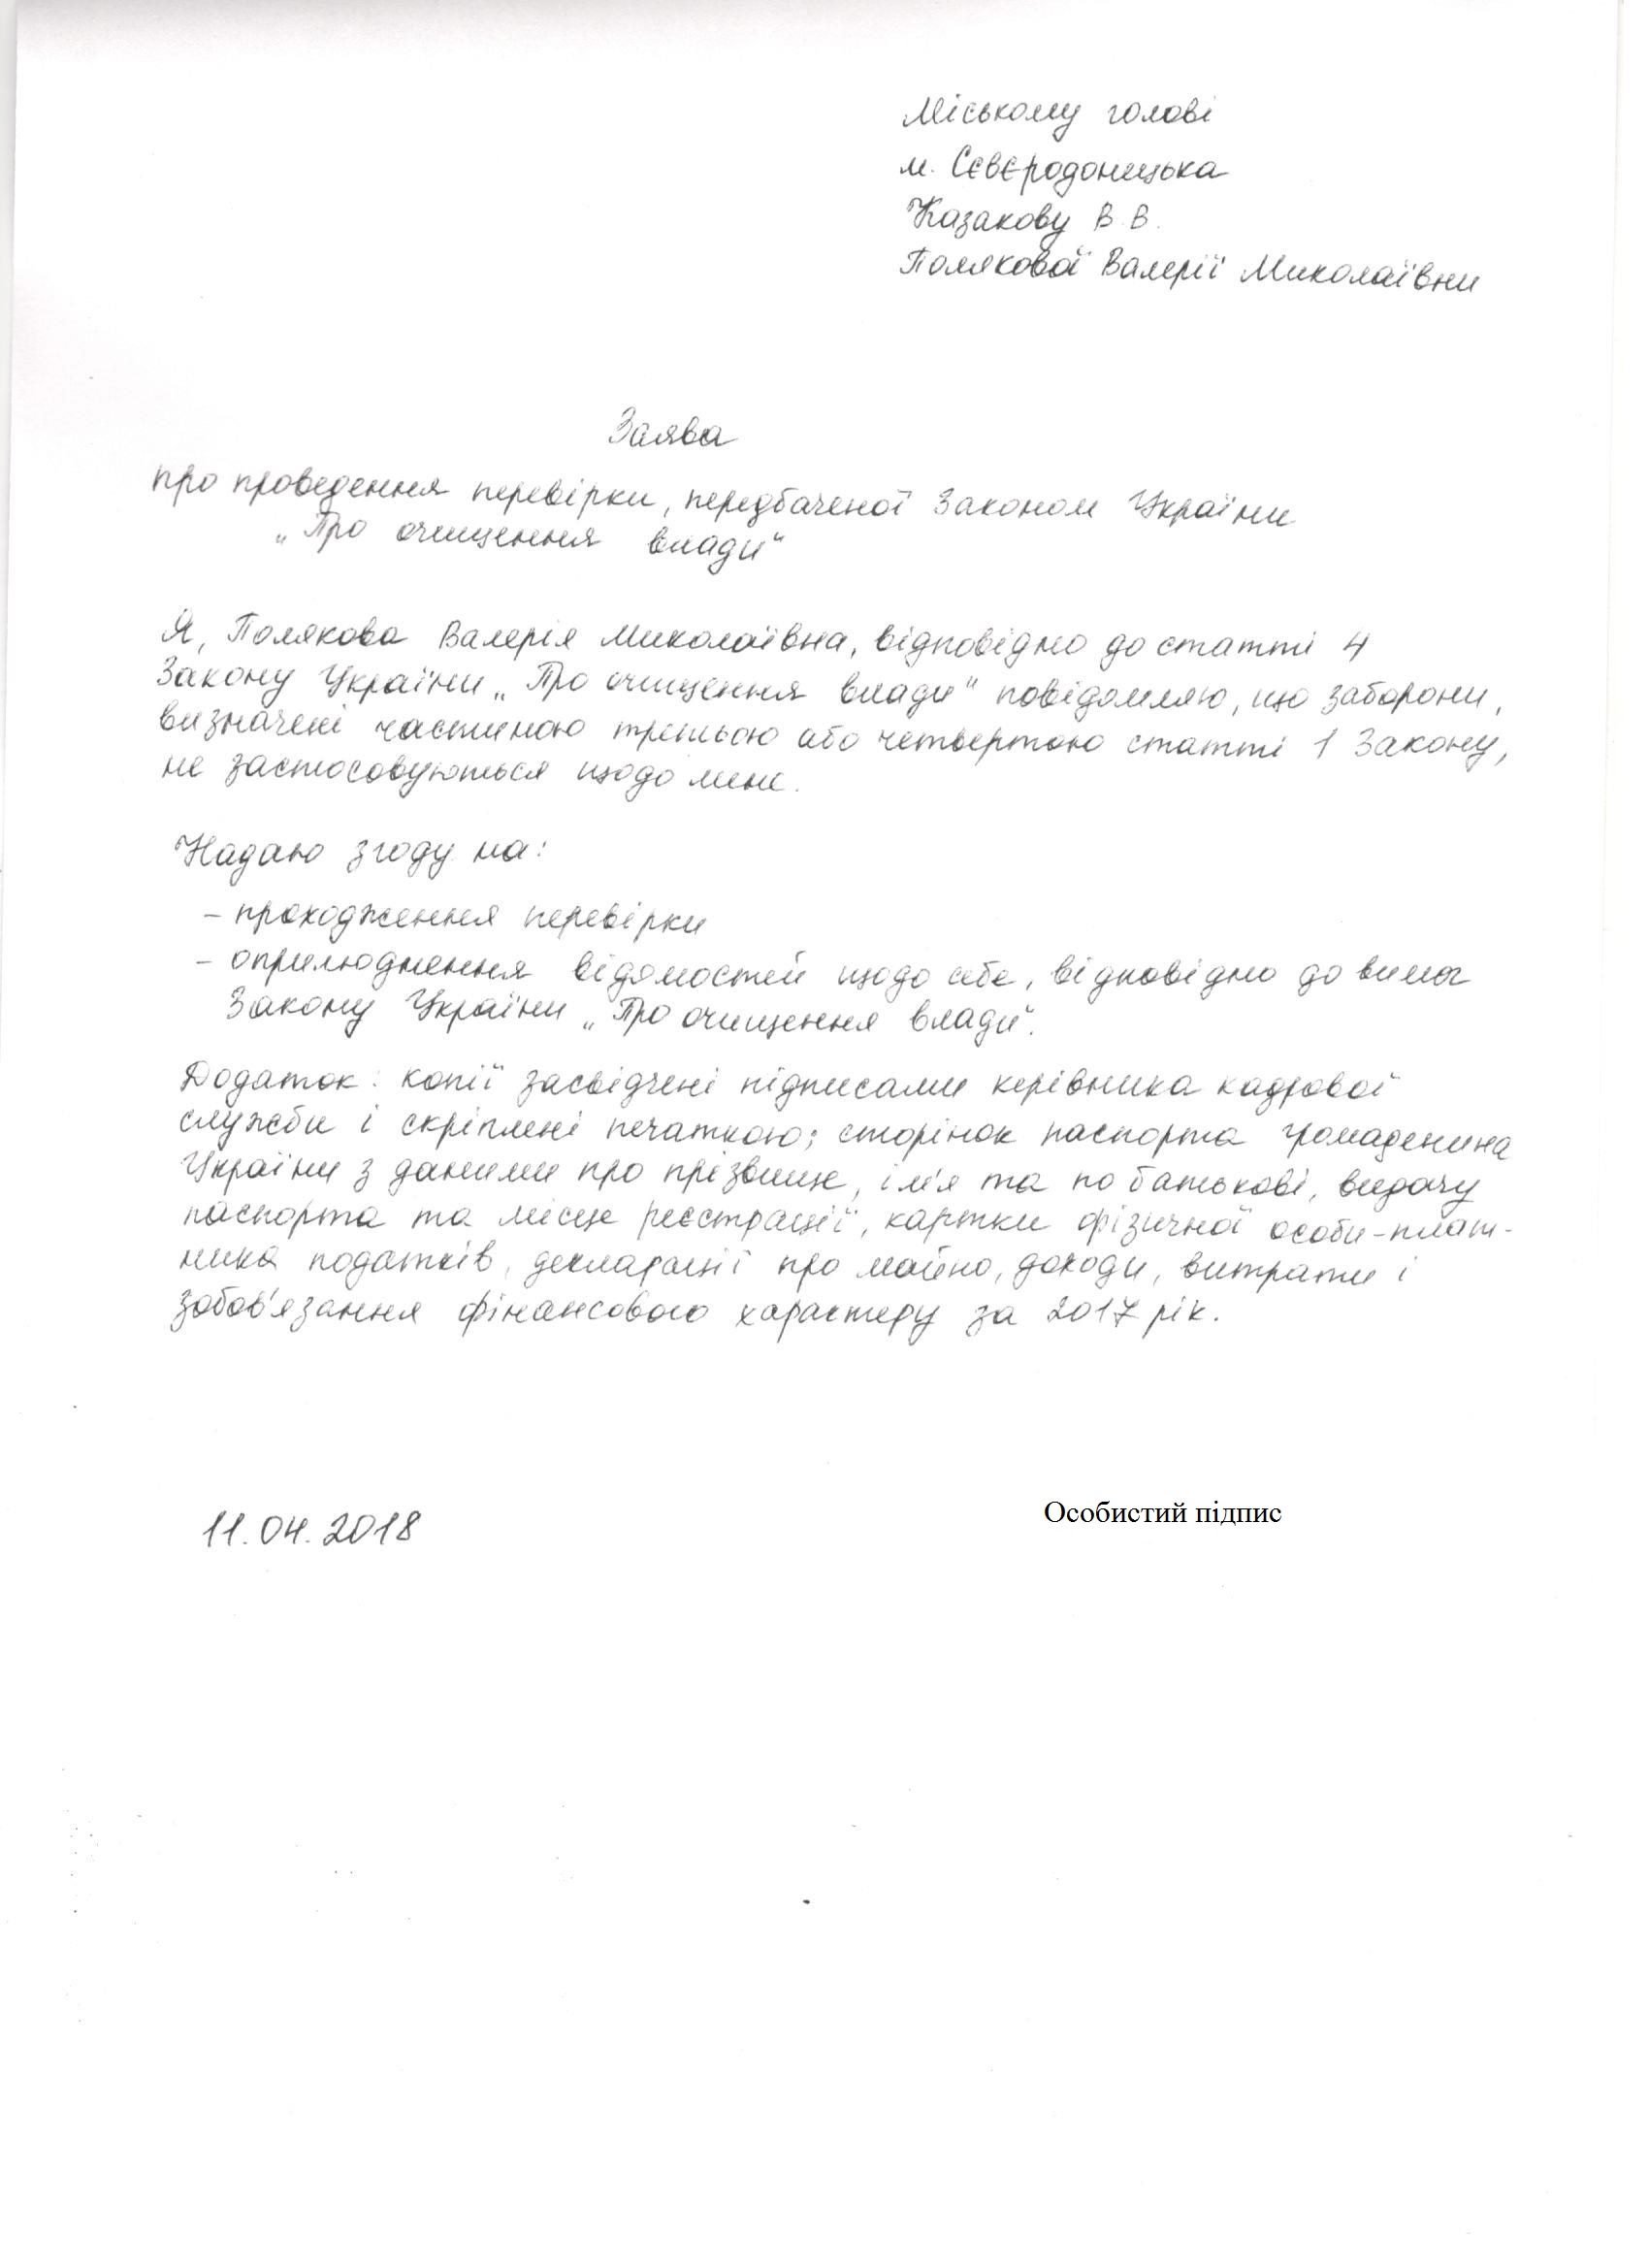 Міському голові
м. Сєвєродонецька
Казакову В.В.
Полякової Валерії Миколаївни
Заява
про проведення перевірки, передбаченої Законом України
„Про очищення влади"
Я, Полякова Валерія Миколаївна, відповідно до статті 4
Закону України „Про очищення влади" повідомляю, що заборони,
визначені частиною третьою або четвертою статті 1 Закону,
не застосовуються щодо мене.
Надаю згоду на:
- проходження перевірки
- оприлюднення відомостей щодо себе, відповідно до вимог
Закону України „Про очищення влади".
Додаток: копії засвідчені підписами керівника кадрової
служби і скріплені печаткою; сторінок паспорта громадянина
України з даними про прізвище, ім'я та по батькові, видачу
паспорта та місце реєстрації, картки фізичної особи-плат-
ника податків, декларації про майно, доходи, витрати і
зобов'язання фінансового характеру за 2017 рік.
11.04.2018 Особистий підпис